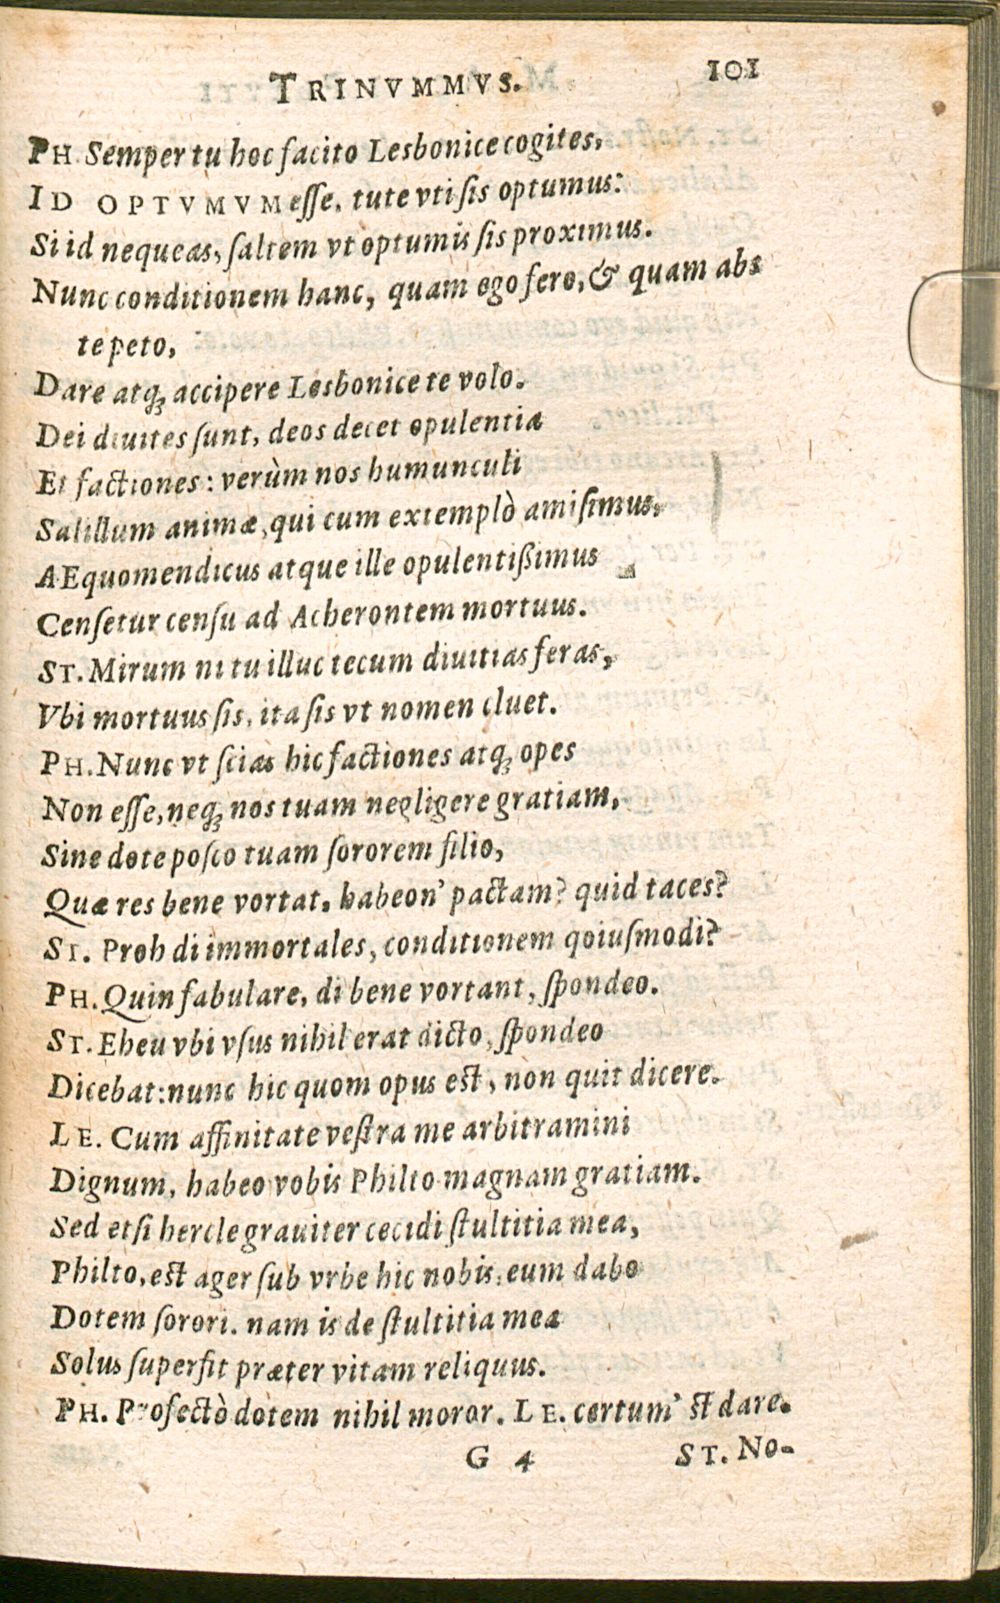 TRINVMMVS. 101
PH. Semper tu hoc facito Lesbonice cogites,
ID OPTVMVM esse, tute vti sis optumus:
Si id nequeas, saltem vt optumis sis proximus.
Nunc conditionem hanc, quam ego fero, & quam abs
te peto,
Dare atq; accipere Lesbonice te volo.
Dei diuites sunt, deos decet opulentiæ
Et factiones: verùm nos humunculi
Salillum animæ, qui cum extemplò amisimus,
AEquo mendicus atque ille opulentißimus
Censetur censu ad Acherontem mortuus.
ST. Mirum ni tu illuc tecum diuitias feras,
Vbi mortuus sis, ita sis vt nomen cluet.
PH. Nunc vt scias hic factiones atq; opes
Non esse, neq; nos tuam negligere gratiam,
Sine dote posco tuam sororem filio,
Quæ res bene vortat. habeon' pactam? quid taces?
ST. Proh di immortales, conditionem qoiusmodi?
PH. Quin fabulare, di bene vortant, spondeo.
ST. Eheu vbi vsus nihil erat dicto, spondeo
Dicebat: nunc hic quom opus est, non quit dicere.
LE. Cum affinitate vestra me arbitramini
Dignum, habeo vobis Philto magnam gratiam.
Sed etsi hercle grauiter cecidi stultitia mea,
Philto, est ager sub vrbe hic nobis, eum dabo
Dotem sorori. nam is de stultitia mea
Solus superfit præter vitam reliquus.
PH. Profectò dotem nihil moror. LE. certum' st dare.
G 4 ST. No-